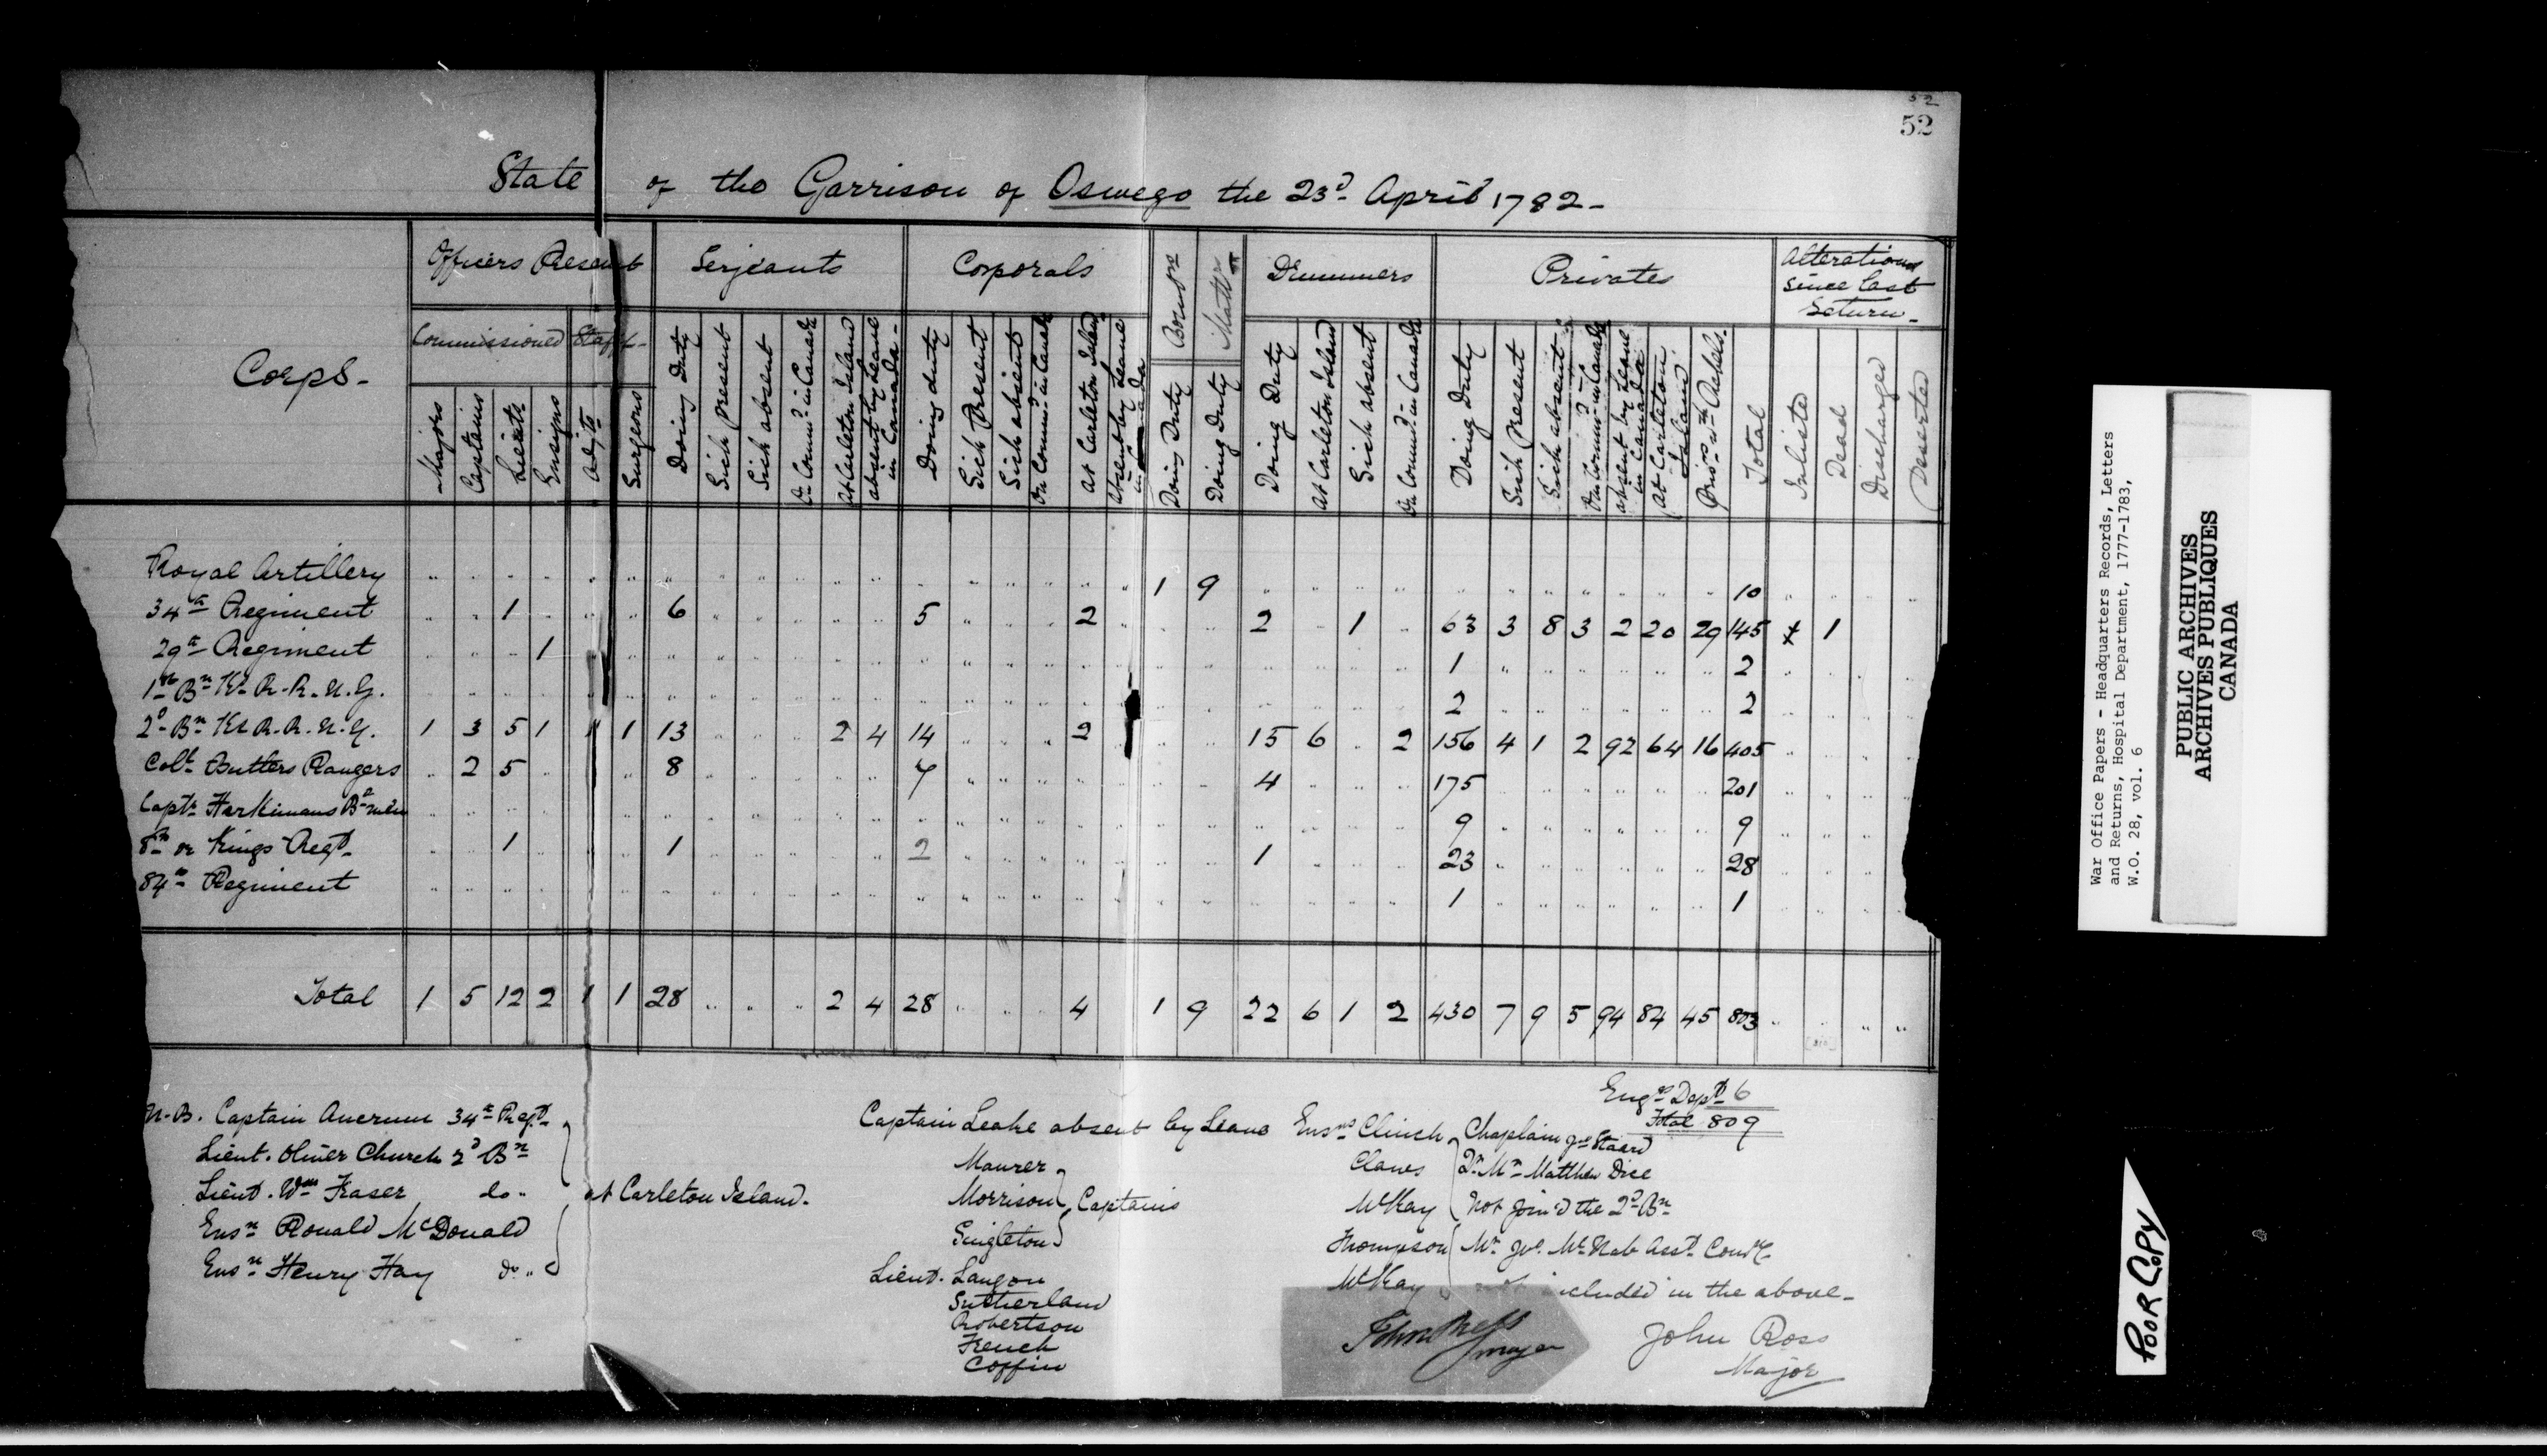 52
52
State of the Garrison of Oswego the 23d April 1782-
Corps-
Officers Present
Serjeants
Corporals
Drummers
Privates
Alterations since last Return-
Commissioned Staff-
Majors Captains Lieuts Ensigns Adjts Surgeons
Doing Duty Sick present Sick absent On Commd in Canada At Carleton Island absent by Leave in Canada-
Doing duty Sick Present Sick absent On Commd in Canada At Carleton Island Absent by Leave in Canada
Doing Duty Doing Duty
Doing Duty At Carleton Island Sick absent On Commd in Canada
Doing Duty Sick present Sick absent On Commd in Canada absent by Leave in Canada At Carleton Island Prisrs wth Rebels. Total
Inlisted Dead Discharged Deserted
Royal Artillery 1 9 10
34th Regiment 1 6 5 2 2 1 63 3 8 3 2 20 29 145 1
29th Regiment 1 1 2
1st Bn Ks R. R. N. Y. 2 2
2d Bn Ks R. R. N. Y. 1 3 5 1 1 1 13 2 4 14 2 15 6 2 156 4 1 2 92 64 16 405
Coll Butlers Rangers 2 5 8 7 4 175 201
Captn Harkimans Bd men 9 9
8th or Kings Regt 1 1 2 1 23 28
84th Regiment 1 1
Total 1 5 12 2 1 1 28 2 4 28 4 1 9 22 6 1 2 430 7 9 5 94 84 45 803
Engrs Dept 6
Total 809
N.B. Captain Ancrum 34th Regt
Lieut. Oliver Church 2d Bn
Lieut. Wm Fraser do.
Ensn Ronald McDonald
Ensn Henry Hay do.
at Carleton Island.
Captain Leake absent by Leave
Maurer
Morrison
Singleton
Captains
Lieut. Langon
Sutherland
Robertson
French
Coffin
Ensns Clinch
Claws
McKay
Thompson
McKay
Chaplain Jno Stuard
Qr Mr Matthew Dice
Not Join'd the 2d Bn
Mr Jno McNab Asst Comry
not included in the above-
John Ross
Major
John Ross
Major
War Office Papers - Headquarters Records, Letters
and Returns, Hospital Department, 1777-1783,
W.O. 28, vol. 6
PUBLIC ARCHIVES
ARCHIVES PUBLIQUES
CANADA
POOR COPY